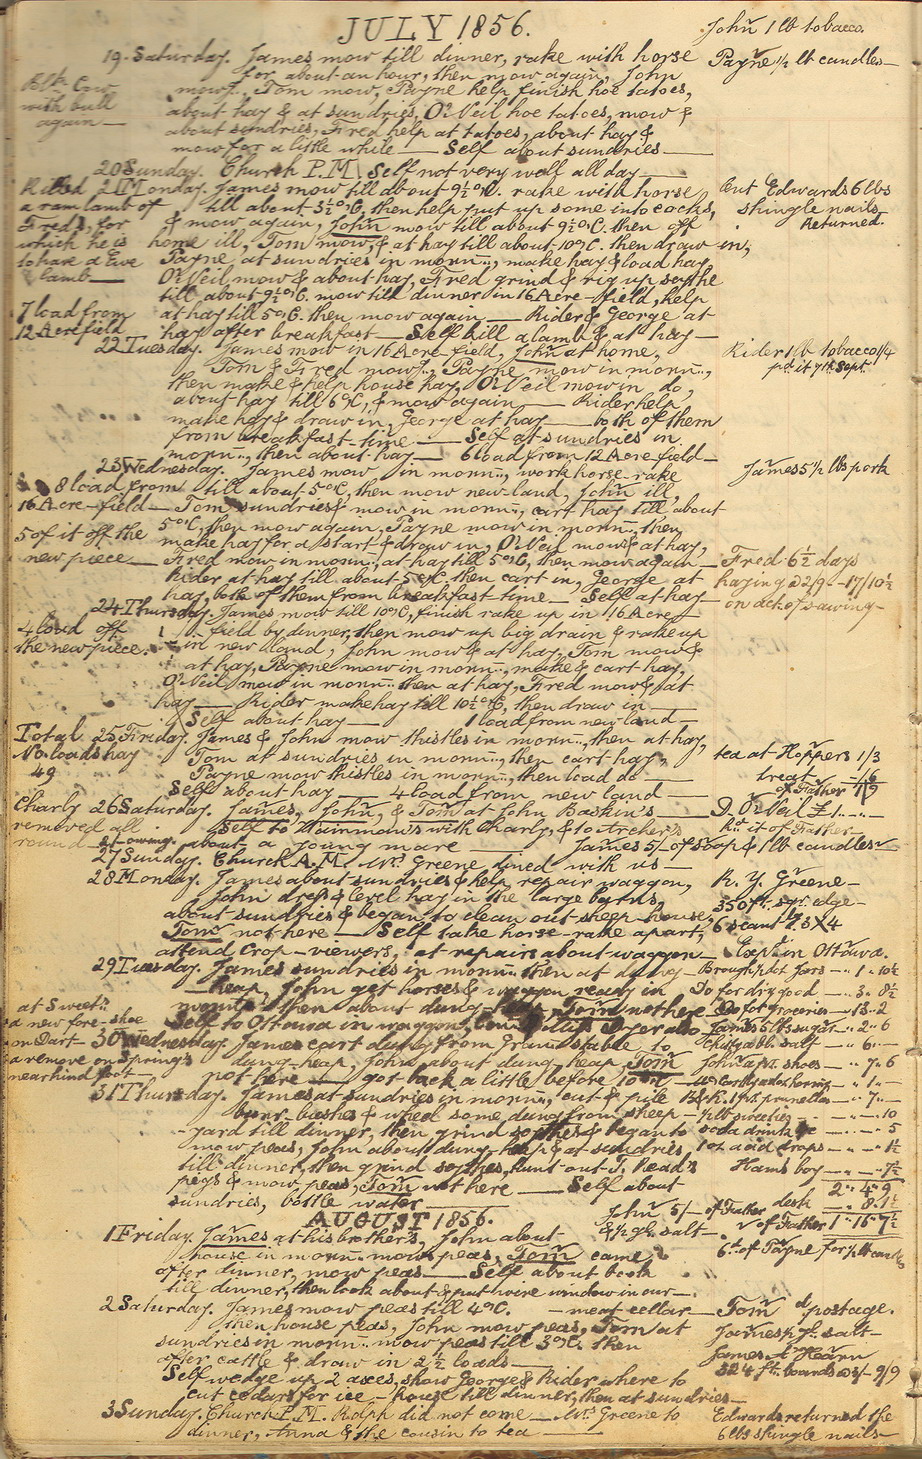 JULY 1856.
John 1 lb tobacco.
19. Saturday. James mow till dinner, rake with horse
Payne ½ lb candles—
for about an hour, then mow again, John
Blk Cow
mow, Tom mow, Payne help finish hoe tatoes,
with bull
about hay & at sundries, O'Neil hoe tatoes, mow &
again—
about sundries, Fred help at tatoes, about hay &
mow for a little while — Self about sundries—
20 Sunday. Church P.M. Self not very well all day—
Killed
21 Monday. James mow till about 9½ o'C. rake with horse
Lent Edwards 6 lbs
a ram lamb of
till about 3½ o'C, then help put up some into cocks,
shingle nails
Fred's, for
& mow again, John mow till about 9½ o'C. then off
Returned.
which he is
home ill, Tom mow, & at hay till about 10 o'C. then draw in,
to have a Ewe
Payne at sundries in morn., make hay & load hay,
lamb—
O'Neil mow & about hay, Fred grind & rig up scythe
till about 9½ o'C. mow till dinner in 16 Acre-field, help
7 load from
at hay till 5 o'C. then mow again — Rider & George at
12 Acre field
hay after breakfast — Self kill a lamb & at hay—
22 Tuesday. James mow in 16 Acre-field, John at home,
Rider 1 lb tobacco 1/4
Tom & Fred mow, Payne mow in morn.,
pd it 7th Sept.
then make & help house hay, O'Neil mow in do,
about hay till 6 o'C, & mow again — Rider help
make hay & draw in, George at hay — both of them
from breakfast-time — Self at sundries in
morn., then about hay — 6 load from 12 Acre-field—
23 Wednesday. James mow in morn., work horse-rake
James 5½ lbs pork
8 load from
till about 5 o'C, then mow new land, John ill,
16 Acre-field—
Tom sundries & mow in morn., cart hay till about
5 o'C, then mow again, Payne mow in morn., then
5 of it off the
make hay for a start & draw in, O'Neil mow & at hay,
new piece—
Fred mow in morn., at hay till 5 o'C, then mow again—
Fred 6½ days
Rider at hay till about 5 o'C. then cart in, George at
haying @ 2/9 - 17/10½
hay, both of them from breakfast-time — Self at hay—
on acct of sawing—
24 Thursday. James mow till 10 o'C, finish rake up in 16 Acre
4 load off
field by dinner, then mow up big drain & rake up
the new piece.
in new land, John mow & at hay, Tom mow &
at hay, Payne mow in morn., make & cart hay,
O'Neil mow in morn. then at hay, Fred mow & at
hay — Rider make hay till 10½ o'C, then draw in—
Self about hay — 1 load from new land—
Total
25 Friday. James & John mow thistles in morn., then at hay,
No. loads hay
Tom at sundries in morn., then cart hay,
tea at Hoppers 1/3
49
Payne mow thistles in morn., then load do—
treat
Self about hay — 4 load from new land—
of Father 1/9
Charly
26 Saturday. James, John, & Tom at John Baskin's—
D. O'Neil £1
removed all
Self to Mainman's with Charly, & to Archer's
hd it of Father—
round
about a young mare — James 5/- of soap & 1 lb candles
27 Sunday. Church A.M. Mrs Greene dined with us—
28 Monday. James about sundries & help repair waggon,
R. Y. Greene—
John dress & level hay in the large barns,
350 ft. sqr. edge—
about sundries & began to clean out sheep-house,
6 scantlg. 3 X 4
Tom not here — Self take horse-rake apart,
attend crop-viewers, at repairs about waggon—
Exp. in Ottawa.
29 Tuesday. James sundries in morn. then at dung—
1 " 10½
heap, John get horses & waggon ready in
Do for dry good — " 3 " 8½
morn. then about dung-heap, Tom not here
Do for groceries — 13 " 2
at Sweet's
Self to Ottawa in waggon
James 5 lbs sugar — " 2 " 6
a new fore-shoe
30 Wednesday. James cart dung from grain stable to
salt — " 6 " —
on Dart
dung-heap, John about dung heap, Tom
John a pr. shoes — " 7 " 6
a remove on Spring's
not here — got back a little before 10 o'C—
near hind foot—
31 Thursday. James at sundries in morn., cut & pile
prunellas — " 7 " —
burr-bushes & wheel some dung from sheep—
sweeties — " " 10
yard till dinner, then grind scythes & began to
soda drink — " " 5
mow peas, John about dung-heap & at sundries
1 oz acid drops — " " 1½
till dinner, then grind scythes, hunt out T. Read's
Ham's boy — " " 7½
pegs & mow peas, Tom not here — Self about
2 " 4 " 9
sundries, bottle water—
desk — " 8 " 1½
AUGUST 1856.
John 5/- of Father
of Father 1 " 16 " 7½
1 Friday. James at his brother's, John about
& ½ gl. salt—
6d. of Payne for ½ lb candles
house in morn. mow peas, Tom came
after dinner, mow peas — Self about book
till dinner, then look about & put wire window in our
2 Saturday. James mow peas till 4 o'C. — meat cellar—
Tom d postage.
then house peas, John mow peas, Tom at
James ½ gl. salt—
sundries in morn. mow peas till 3 o'C. then
James A'Hearn
after cattle & draw in 2½ loads—
324 ft. boards @ 3/- 9/9
Self wedge up 2 axes, show George & Rider where to
cut cedars for ice-house till dinner, then at sundries—
3 Sunday. Church P.M. Rolph did not come — Mrs Greene to
Edwards returned the
dinner, Anna & the cousin to tea—
6 lbs shingle nails—